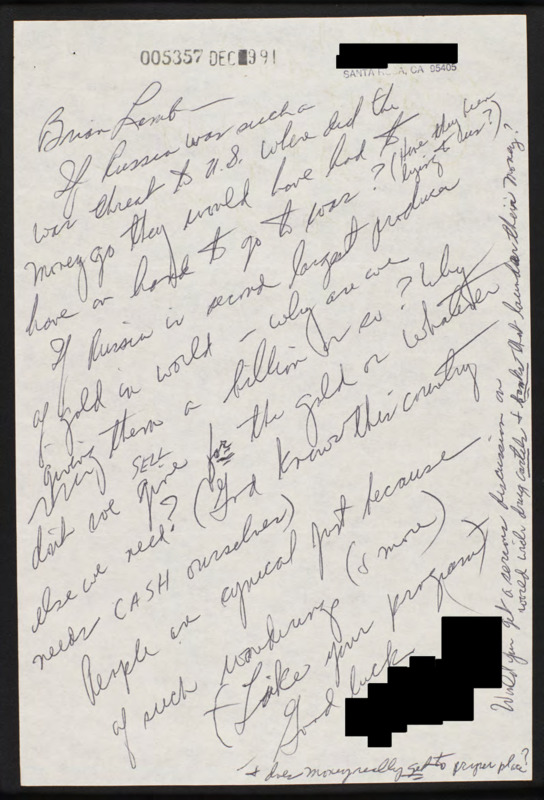 005357 DEC 1991
SANTA ROSA, CA 95405
Brian Lamb
If Russia was such a
war threat to U.S. where did the
money go they would have had to
have on hand to go to war? (Have they been
lying to us?)
If Russia is second largest producer
of gold in world - why are we
giving them a billion or so? Why
don't we SELL give for the gold or whatever
else we need? (God knows this country
needs CASH ourselves)
People are cynical just because
of such wonderings (& more)
(Like your program)
Good luck
+ does money really get to proper place?
Would you get a serious discussion on
world wide drug cartels & banks that launder their money?